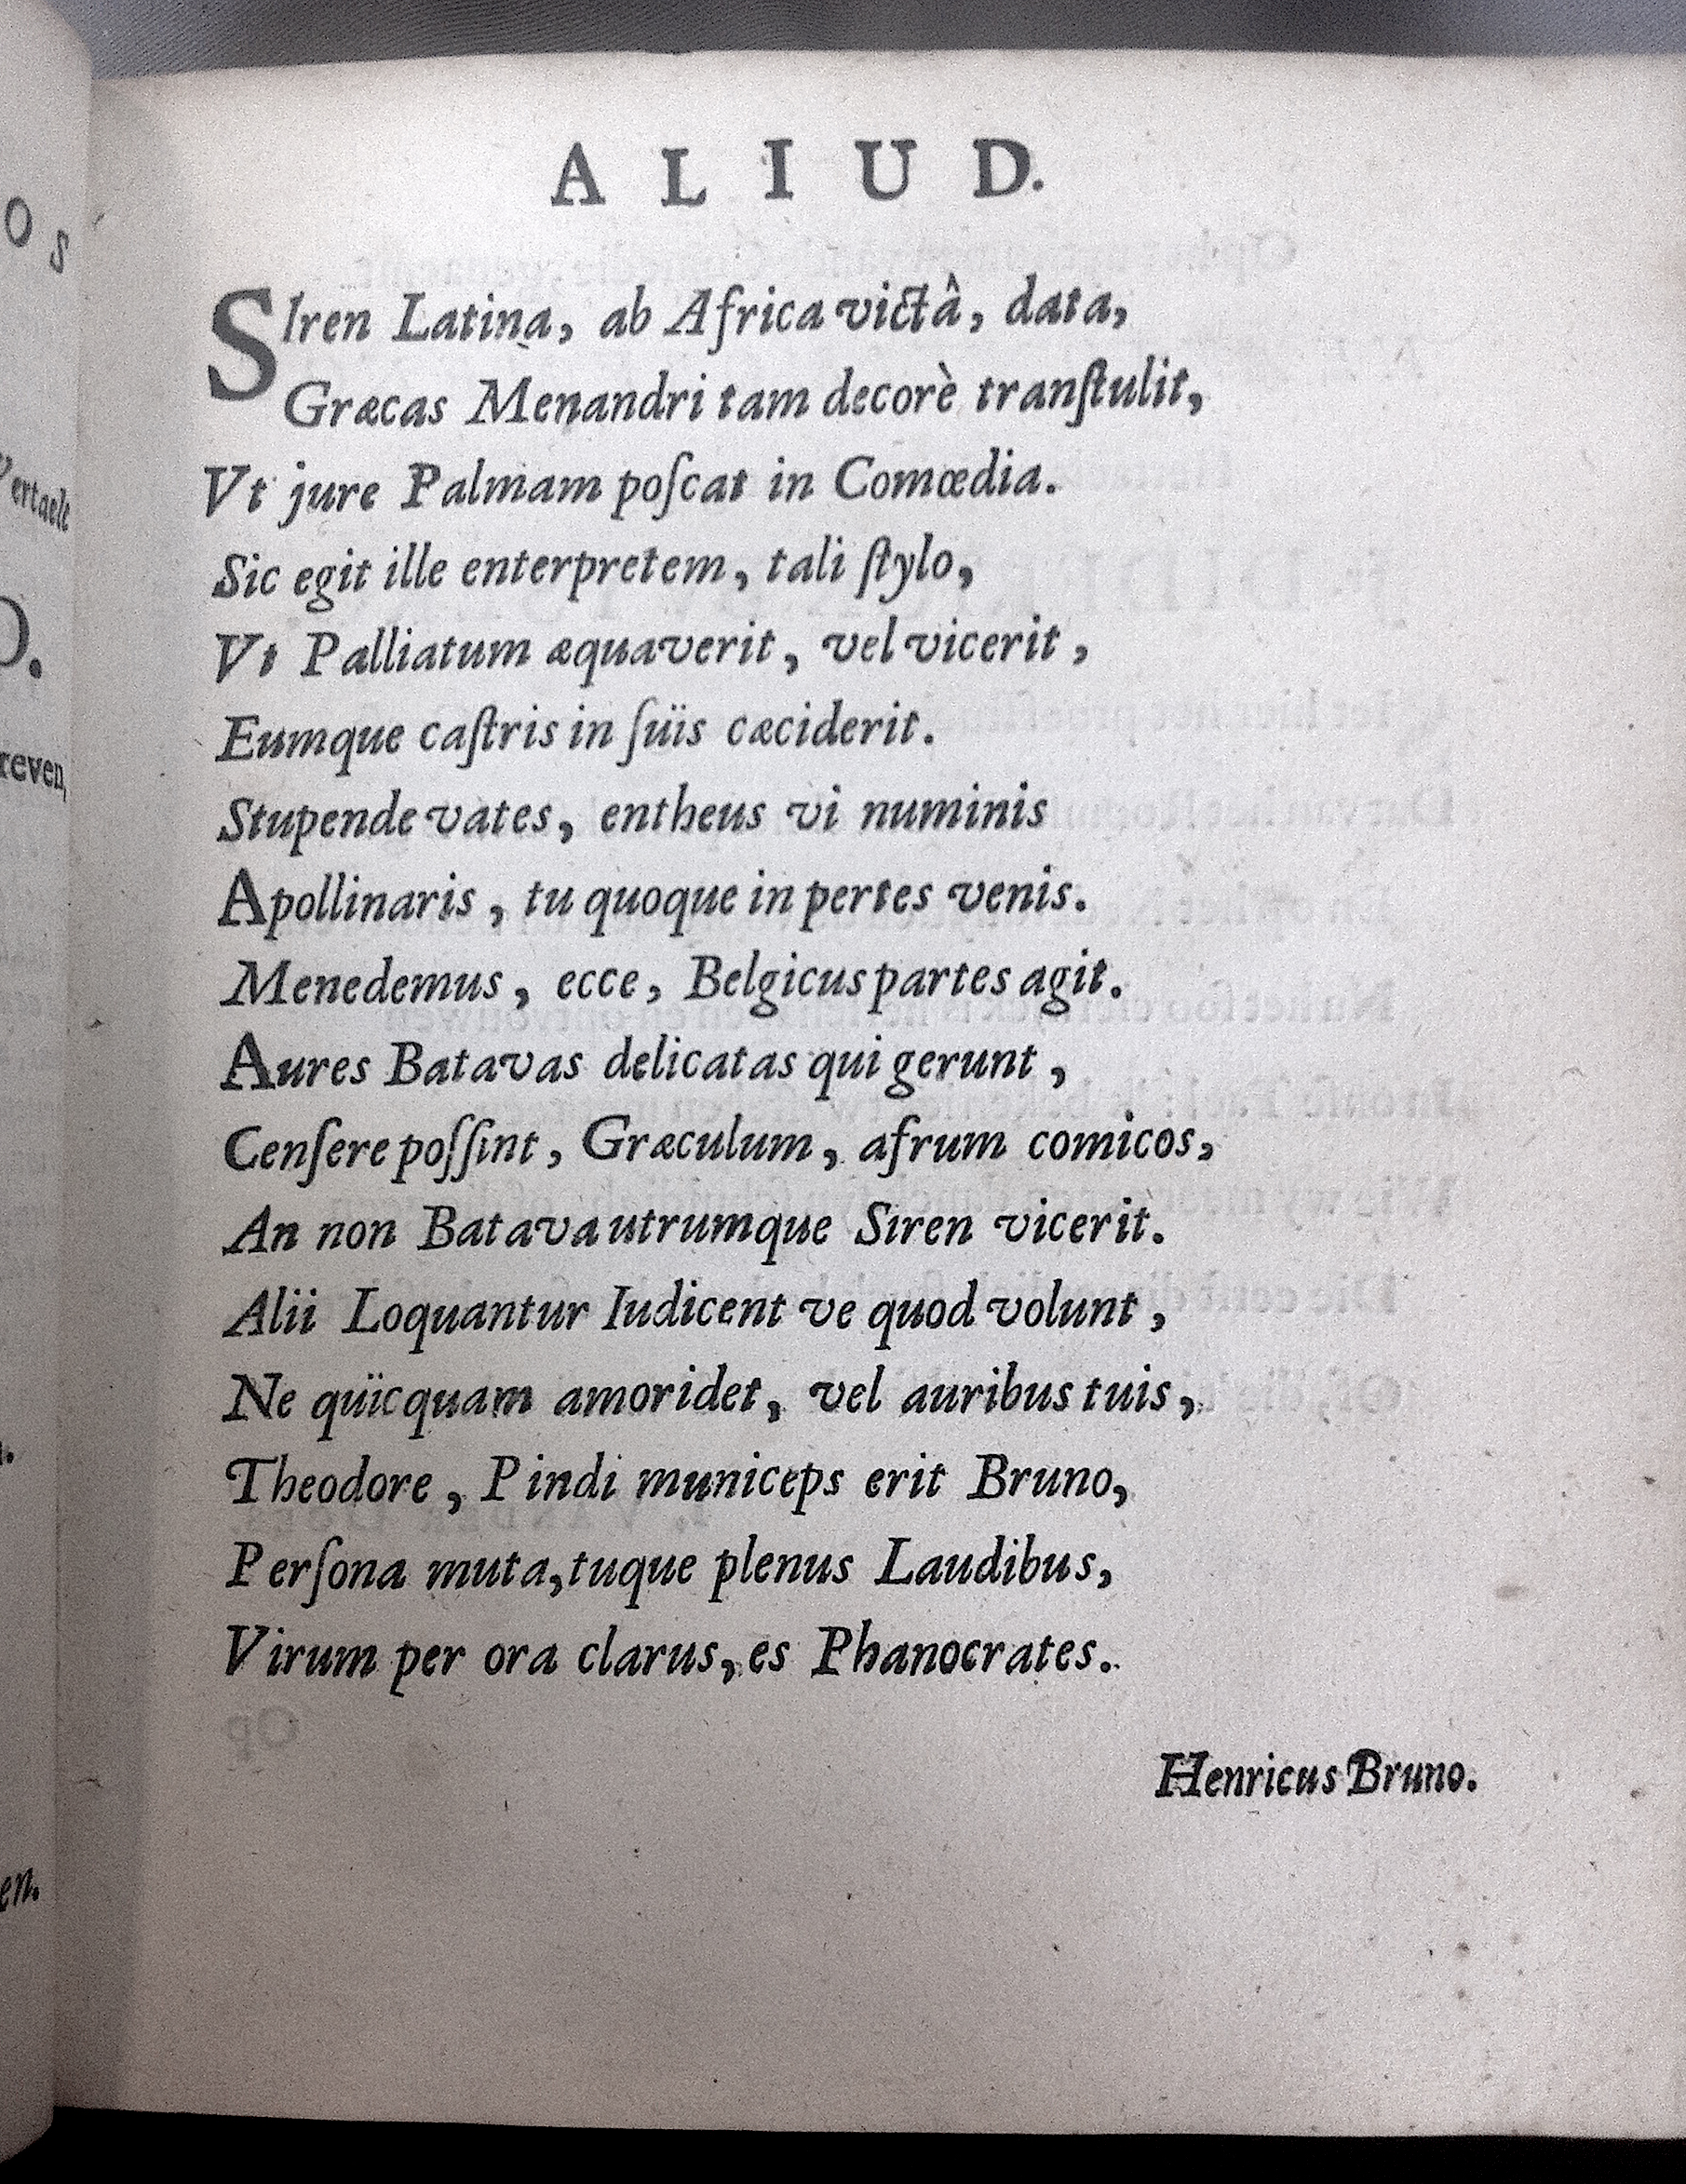 ALIUD.
SIren Latina, ab Africa victâ, data,
Græcas Menandri tam decorè tranſtulit,
Vt jure Palmam poſcat in Comœdia.
Sic egit ille enterpretem, tali ſtylo,
Vt Palliatum æquaverit, vel vicerit,
Eumque caſtris in ſüis cæciderit.
Stupende vates, entheus vi numinis
Apollinaris, tu quoque in pertes venis.
Menedemus, ecce, Belgicus partes agit.
Aures Batavas delicatas qui gerunt,
Cenſere poſſint, Græculum, afrum comicos,
An non Batava utrumque Siren vicerit.
Alii Loquantur Iudicent ve quod volunt,
Ne qüicquam amoridet, vel auribus tuis,
Theodore, Pindi municeps erit Bruno,
Perſona muta, tuque plenus Laudibus,
Virum per ora clarus, es Phanocrates.
Henricus Bruno.
OS
ertaelt
O.
reven,
en.